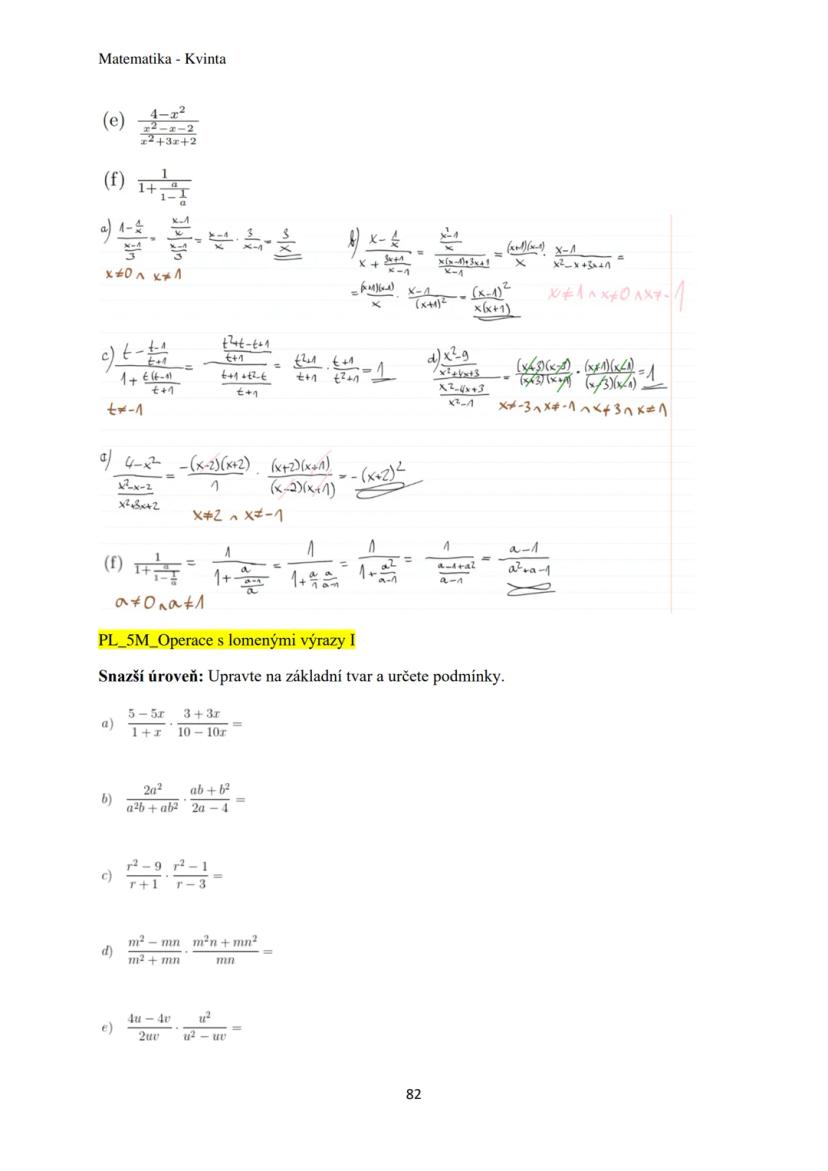 Matematika - Kvinta
(e) \frac{4-x^2}{\frac{x^2-x-2}{x^2+3x+2}}
(f) \frac{1}{1+\frac{a}{1-\frac{1}{a}}}
a) \frac{1-\frac{1}{x}}{\frac{x-1}{3}} = \frac{\frac{x-1}{x}}{\frac{x-1}{3}} = \frac{x-1}{x} \cdot \frac{3}{x-1} = \frac{3}{x}
x≠0 ∧ x≠1
b) \frac{x-\frac{1}{x}}{x+\frac{3x+1}{x-1}} = \frac{\frac{x^2-1}{x}}{\frac{x(x-1)+3x+1}{x-1}} = \frac{(x+1)(x-1)}{x} \cdot \frac{x-1}{x^2-x+3x+1} =
= \frac{(x+1)(x-1)}{x} \cdot \frac{x-1}{(x+1)^2} = \frac{(x-1)^2}{x(x+1)} x≠1 ∧ x≠0 ∧ x≠-1
c) \frac{t-\frac{t-1}{t+1}}{1+\frac{t(t-1)}{t+1}} = \frac{\frac{t^2+t-t+1}{t+1}}{\frac{t+1+t^2-t}{t+1}} = \frac{t^2+1}{t+1} \cdot \frac{t+1}{t^2+1} = 1
t≠-1
d) \frac{\frac{x^2-9}{x^2+4x+3}}{\frac{x^2-4x+3}{x^2-1}} = \frac{(x+3)(x-3)}{(x+3)(x+1)} \cdot \frac{(x+1)(x-1)}{(x-3)(x-1)} = 1
x≠-3 ∧ x≠-1 ∧ x≠3 ∧ x≠1
\frac{4-x^2}{\frac{x^2-x-2}{x^2+3x+2}} = \frac{-(x-2)(x+2)}{1} \cdot \frac{(x+2)(x+1)}{(x-2)(x+1)} = -(x+2)^2
x≠2 ∧ x≠-1
(f) \frac{1}{1+\frac{a}{1-\frac{1}{a}}} = \frac{1}{1+\frac{a}{\frac{a-1}{a}}} = \frac{1}{1+\frac{a}{1}\frac{a}{a-1}} = \frac{1}{1+\frac{a^2}{a-1}} = \frac{1}{\frac{a-1+a^2}{a-1}} = \frac{a-1}{a^2+a-1}
a≠0 ∧ a≠1
PL_5M_Operace s lomenými výrazy I
Snazší úroveň: Upravte na základní tvar a určete podmínky.
a) \frac{5-5x}{1+x} \cdot \frac{3+3x}{10-10x} =
b) \frac{2a^2}{a^2b+ab^2} \cdot \frac{ab+b^2}{2a-4} =
c) \frac{r^2-9}{r+1} \cdot \frac{r^2-1}{r-3} =
d) \frac{m^2-mn}{m^2+mn} \cdot \frac{m^2n+mn^2}{mn} =
e) \frac{4u-4v}{2uv} \cdot \frac{u^2}{u^2-uv} =
82